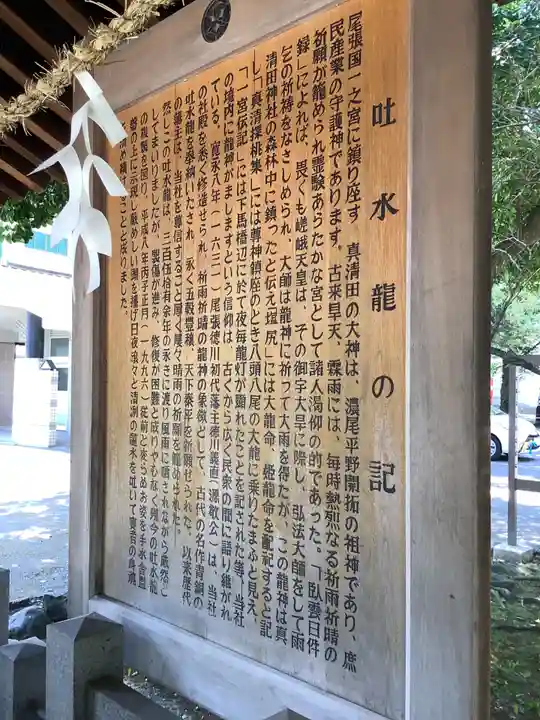 吐水龍の記
尾張国一之宮に鎮り座す、真清田の大神は、濃尾平野開拓の祖神であり、庶
民産業の守護神であります。古来旱天、霖雨には、毎時熱烈なる祈雨祈晴の
祈願が籠められ霊験あらたかな宮として諸人渇仰の的であった。「臥雲日件
録」によれば、畏くも嵯峨天皇は、その御宇大旱に際し、弘法大師をして雨
乞の祈祷をなさしめられ、大師は龍神に祈って大雨を得たが、この龍神は真
清田神社の森林中に鎮ったと伝え「塩尻」には大龍命、姫龍命を配祀すると記
し「真清探桃集」には尊神鎮座のとき八頭八尾の大龍に乗りたまふと見え、
「一宮伝記」には下馬橋辺に於て夜毎龍灯が顕れたことを記された等、当社
の境内に龍神がましますという信仰は、古くから広く民衆の間に語り継がれ
ている。寛永八年(一六三一)尾張徳川初代藩主徳川義直(源敬公)は、当社
の社殿を悉く修造せられ、祈雨祈晴の龍神の象徴として、古代の名作青銅の
吐水龍を奉納いたされ、永く五穀豊穣、天下泰平を祈願せられた。以来歴代
の藩主は、当社を尊信すること厚く屡々晴雨の祈願を籠められた。
然しこの吐水龍は、三百伍拾有余年の永きに渡り風雨に晒されながら厳然と
してまいりましたが、損傷が進み、修復が困難と成りやむなく現今の吐水龍
の複製を図り、平成八年丙子正月(一九九六)従前と変らぬお姿を手水舎盤
の上に示現し厳めしい頭を擡げ日夜滾々と清冽の霊水を吐いて賽者の身魂
を清め
こととと成りました。